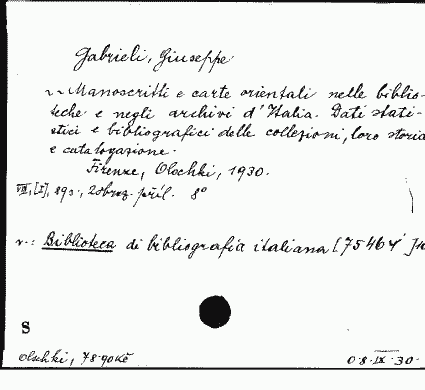 Gabrieli, Giuseppe
Manoscritti e carte orientali nelle biblio-
teche e negli archivi d'Italia. Dati stati-
stici e bibliografici delle collezioni, loro storia
e catalogazione.
Firenze, Olschki, 1930.
VIII, [I], 89 s., 2 obraz. příl. 8°
v.: Biblioteca di bibliografia italiana [75464
S
Olschki, 78·90 Kč
08·IX·30·